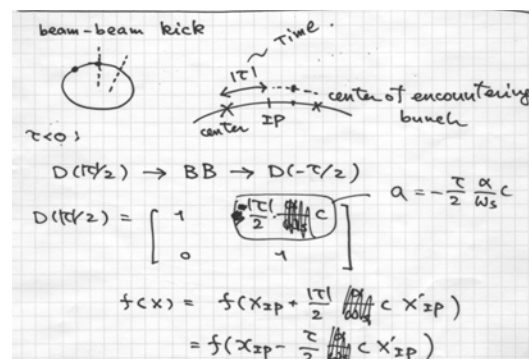 beam-beam kick
~ Time.
|τ|
center of encountering
bunch
center
IP
τ<0:
D(|τ|/2) → BB → D(-τ/2)
a = -τ/2 α/ωs c
D(|τ|/2) = [ 1 |τ|/2 c
0 1 ]
f(x) = f(x_IP + |τ|/2 c x'_IP)
= f(x_IP - τ/2 c x'_IP)